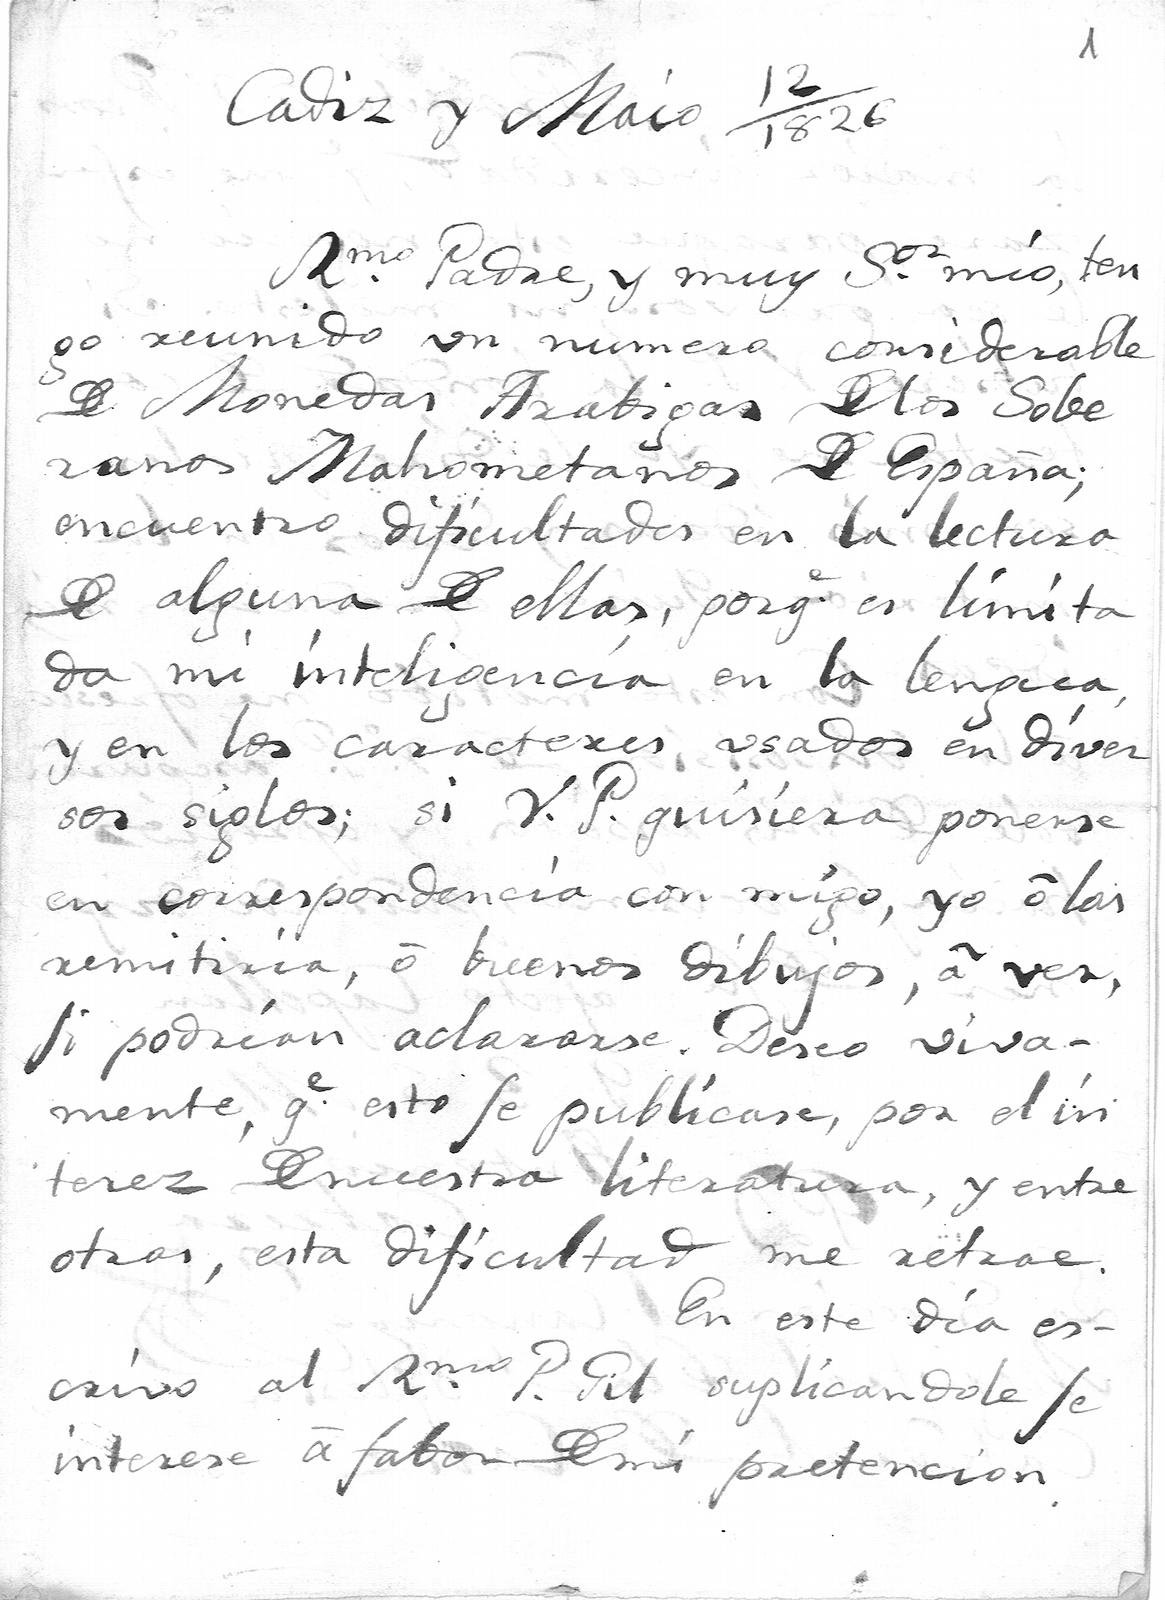 1
Cadiz y Maio 12/1826
Rmo. Padre, y muy Sor. mío, ten
go reunido un numero considerable
De Monedas Arabigas De los Sobe
ranos Mahometanos De España;
encuentro dificultades en la lectura
De alguna De ellas, porqe. es limita
da mi inteligencia en la lengua,
y en los caracteres usados en diver
sos siglos; si V. P. quisiera ponerse
en correspondencia con migo, yo ô las
remitiria, ô buenos dibujos, â ver,
si podrían aclararse. Deseo viva-
mente, qe. esto se publicase, por el in
terez De nuestra literatura, y entre
otras, esta dificultad me retrae.
En este día es-
crivo al Rmo. P. Gil suplicandole se
interese â fabor De mi pretencion.